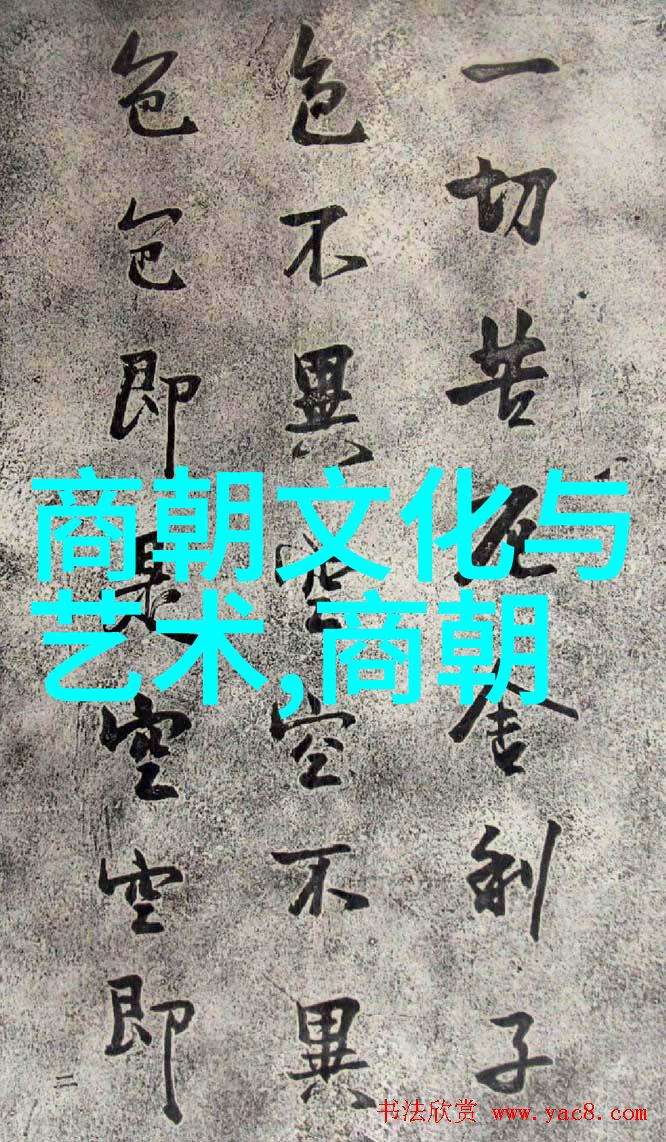 一切苦厄舍利子
色不異空空不異
色色即是空空即
二
商朝文化与
艺术,商朝
书法欣赏 www.yac8.com